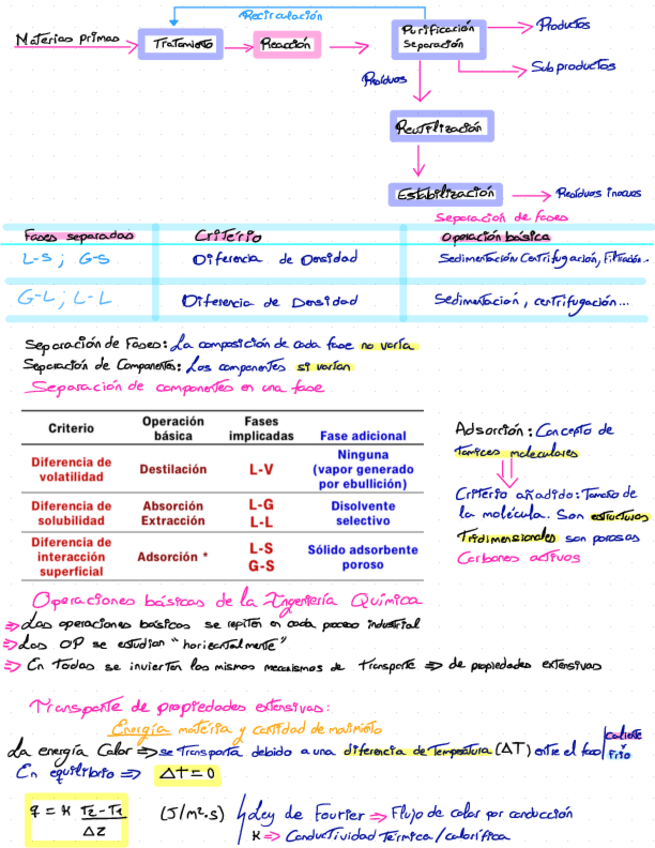 Recirculación
Materias primas
Tratamiento
Reacción
Purificación
Separación
Productos
Sub productos
Residuos
Reutilización
Estabilización
Residuos inocuos
Separación de fases
Fases separadas
Criterio
Operación básica
L-S ; G-S
Diferencia de Densidad
Sedimentación Centrifugación, Filtración..
G-L ; L-L
Diferencia de Densidad
Sedimentación, centrifugación...
Separación de Fases: La composición de cada fase no varía
Separación de Componentes: Los componentes si varían
Separación de componentes en una fase
Criterio
Operación básica
Fases implicadas
Fase adicional
Diferencia de volatilidad
Destilación
L-V
Ninguna (vapor generado por ebullición)
Diferencia de solubilidad
Absorción
Extracción
L-G
L-L
Disolvente selectivo
Diferencia de interacción superficial
Adsorción *
L-S
G-S
Sólido adsorbente poroso
Adsorción: Concepto de
tamices moleculares
Criterio añadido: Tamaño de
la molécula. Son estructuras
Tridimensionales son porosas
Carbones activos
Operaciones básicas de la Ingeniería Química
⇒ Las operaciones básicas se repiten en cada proceso industrial
⇒ Las OP se estudian "horizontalmente"
⇒ En todas se invierten los mismos mecanismos de transporte ⇒ de propiedades extensivas
Transporte de propiedades extensivas:
Energía materia y cantidad de movimiento
La energía Calor ⇒ se transporta debido a una diferencia de temperatura (ΔT) entre el foco / Caliente
Frío
En equilibrio ⇒ Δt = 0
q = K T2-T1 / Δz
(J/m²·s)
Ley de Fourier ⇒ Flujo de calor por conducción
K ⇒ Conductividad térmica / calorífica